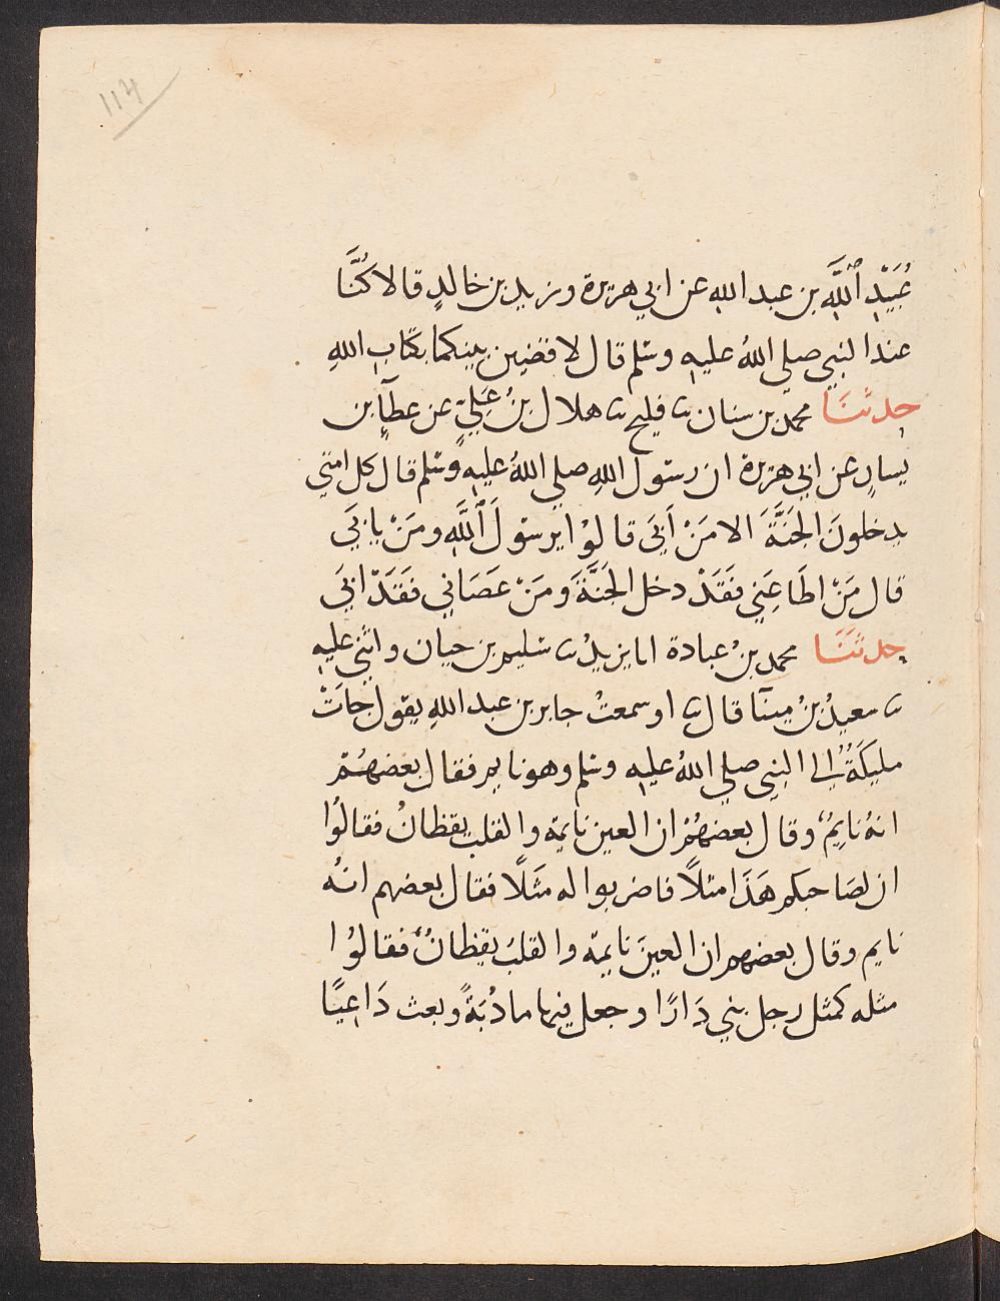 114
عُبَيْدِ ٱللَّهِ بن عبد الله عن ابي هريرة وزيد بن خالدٍ قالا كُنَّا
عند النبي صلي اللهُ عليهِ وسلم قال لاقضين بينكما بكتابِ اللهِ
حدثنَا محمد بن سنان ثنا فليح ثنا هلال بنُ عَلِيٍّ عن عطآءِ بن
يسارٍ عن ابي هريرة ان رسول اللهِ صلي اللهُ عليهِ وسلم قال كل امتي
يدخلونَ الجَنَّةَ الا مَنْ اَبَيَ قالوُا يرسولَ ٱللَّهِ ومَنْ يابَي
قال مَنْ اطَاعَنِي فَقَدْ دخل الجَنَّةَ ومَنْ عَصَانِي فَقَدْ ابَي
حدثنَا محمد بنُ عبادة انا يزيدُ ثنا سليم بن حيان واثني عليهِ
ثنا سعيدُ بنُ مينآ قال ثنا او سمعتُ جابر بن عبد اللهِ يقول جاتْ
مليكَةٌ الي النبي صلي اللهُ عليهِ وسلم وهو نايم فقال بعضهُمْ
انهُ نايِمٌ وقال بعضهُمْ ان العين نايمة والقلب يقظانُ فقالُوا
ان لصَاحبكم هَذَا مثلًا فاضربوا له مَثَلًا فقال بعضهم انهُ
نايم وقال بعضهم ان العينَ نايمة والقلبُ يقظانُ فقالوُا
مثله كمثل رجل بني دَارًا وجعل فيها مادُبَةً وبعث دَاعِيًا